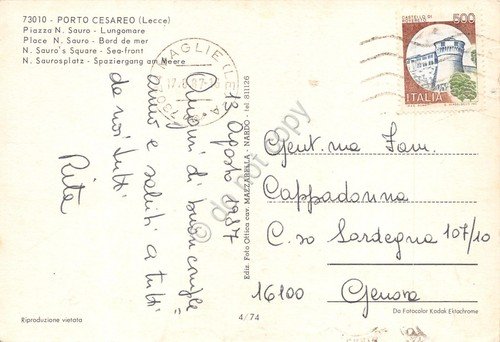 73010 - PORTO CESAREO (Lecce)
Piazza N. Sauro - Lungomare
Place N. Sauro - Bord de mer
N. Sauro's Square - Sea-front
N. Saurosplatz - Spaziergang an Meere
MAGLIE (LE)
500
ITALIA
13 Agosto 1987
Auguri di buon comple
anno e saluti a tutti
da noi tutti
Rita
Ediz. Foto Ottica cav. MAZZARELLA - NARDO - tel 811126
do not copy
Gent.ma Fam.
Cappadonna
C.so Sardegna 107/10
16100 Genova
Da Fotocolor Kodak Ektachrome
Riproduzione vietata
4/74